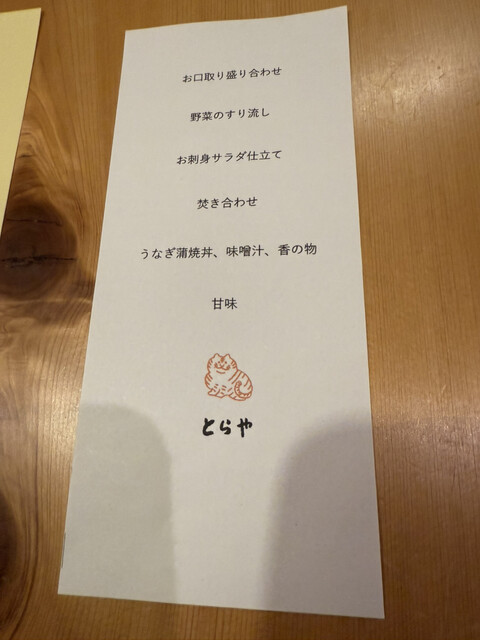 お口取り盛り合わせ
野菜のすり流し
お刺身サラダ仕立て
焚き合わせ
うなぎ蒲焼丼、味噌汁、香の物
甘味
とらや